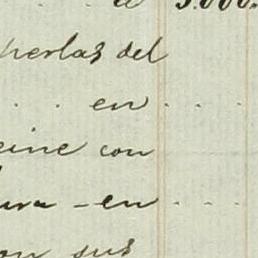 a 3.000.
perlas del
. . en . . .
eine con
ura - en . . .
on sus